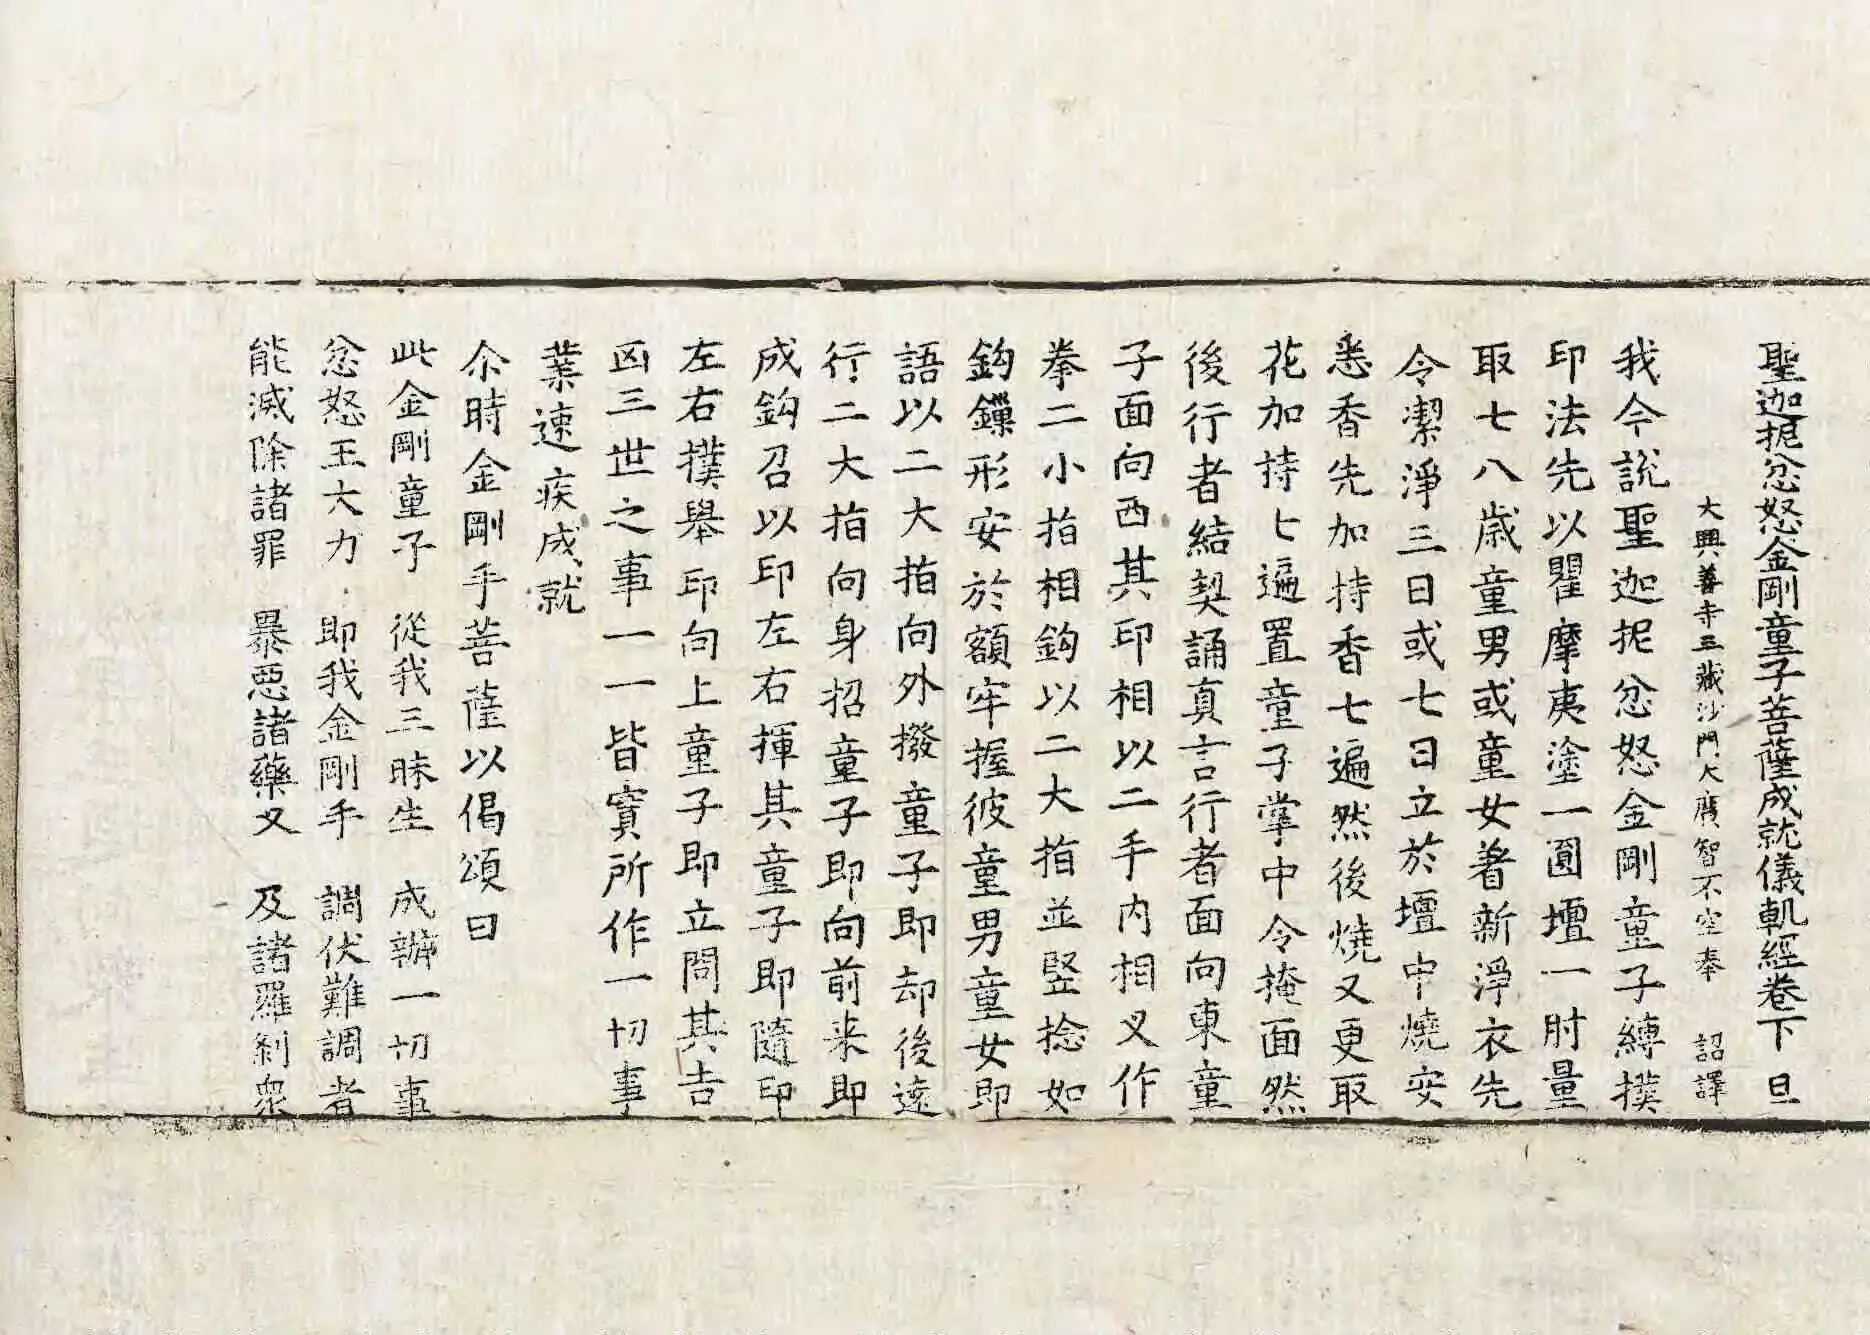 聖迦抳忿怒金剛童子菩薩成就儀軌經卷下 旦
大興善寺三藏沙門大廣智不空奉 詔譯
我今說聖迦抳忿怒金剛童子縛撲
印法先以瞿摩夷塗一圓壇一肘量
取七八歲童男或童女著新淨衣先
令潔淨三日或七日立於壇中燒安
悉香先加持香七遍然後燒又更取
花加持七遍置童子掌中令掩面然
後行者結契誦真言行者面向東童
子面向西其印相以二手內相叉作
拳二小指相鈎以二大指並竪捻如
鈎鏁形安於額牢握彼童男童女即
語以二大指向外撥童子即却後遠
行二大指向身招童子即向前来即
成鈎召以印左右揮其童子即隨印
左右撲舉印向上童子即立問其吉
凶三世之事一一皆實所作一切事
業速疾成就
尒時金剛手菩薩以偈頌曰
此金剛童子 從我三昧生 成辦一切事
忿怒王大力 即我金剛手 調伏難調者
能滅除諸罪 暴惡諸藥叉 及諸羅剎眾